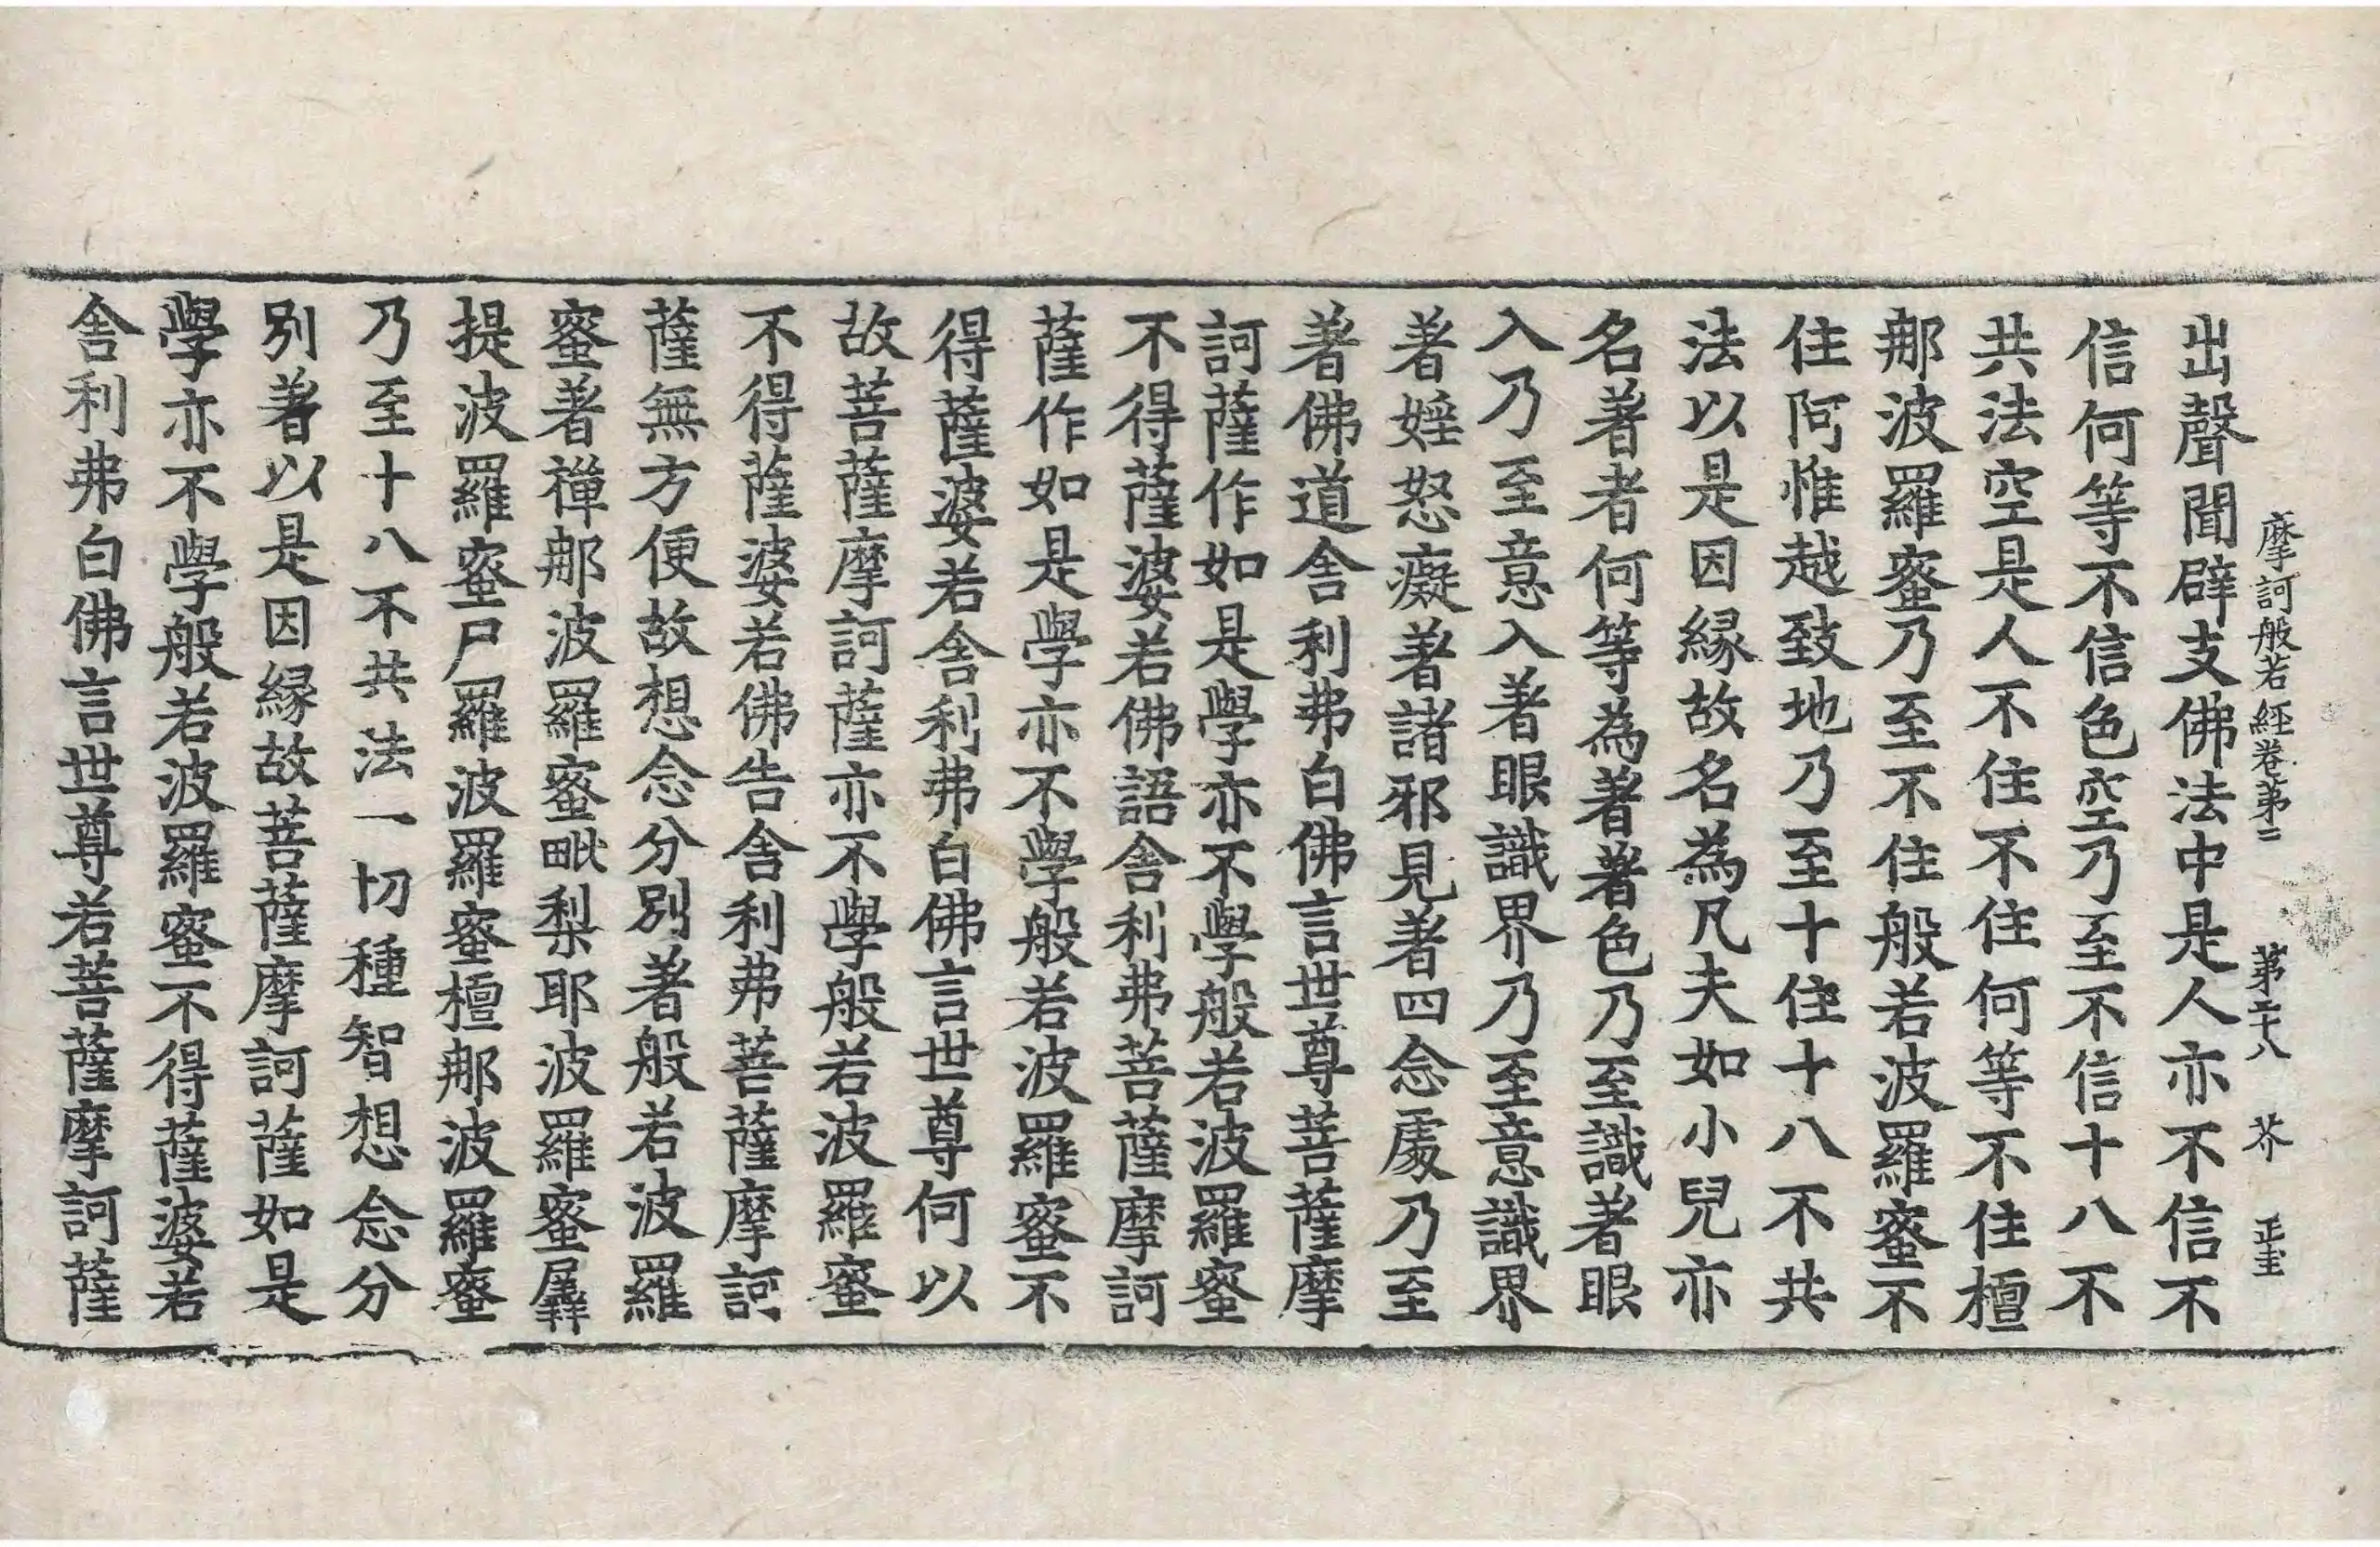 摩訶般若經卷第二　第二十八　芥　正主
出聲聞辟支佛法中是人亦不信不
信何等不信色空乃至不信十八不
共法空是人不住不住何等不住檀
那波羅蜜乃至不住般若波羅蜜不
住阿惟越致地乃至十住十八不共
法以是因緣故名為凡夫如小兒亦
名著者何等為著著色乃至識著眼
入乃至意入著眼識界乃至意識界
著婬怒癡著諸邪見著四念處乃至
著佛道舍利弗白佛言世尊菩薩摩
訶薩作如是學亦不學般若波羅蜜
不得薩婆若佛語舍利弗菩薩摩訶
薩作如是學亦不學般若波羅蜜不
得薩婆若舍利弗白佛言世尊何以
故菩薩摩訶薩亦不學般若波羅蜜
不得薩婆若佛告舍利弗菩薩摩訶
薩無方便故想念分別著般若波羅
蜜著禪那波羅蜜毗梨耶波羅蜜羼
提波羅蜜尸羅波羅蜜檀那波羅蜜
乃至十八不共法一切種智想念分
別著以是因緣故菩薩摩訶薩如是
學亦不學般若波羅蜜不得薩婆若
舍利弗白佛言世尊若菩薩摩訶薩